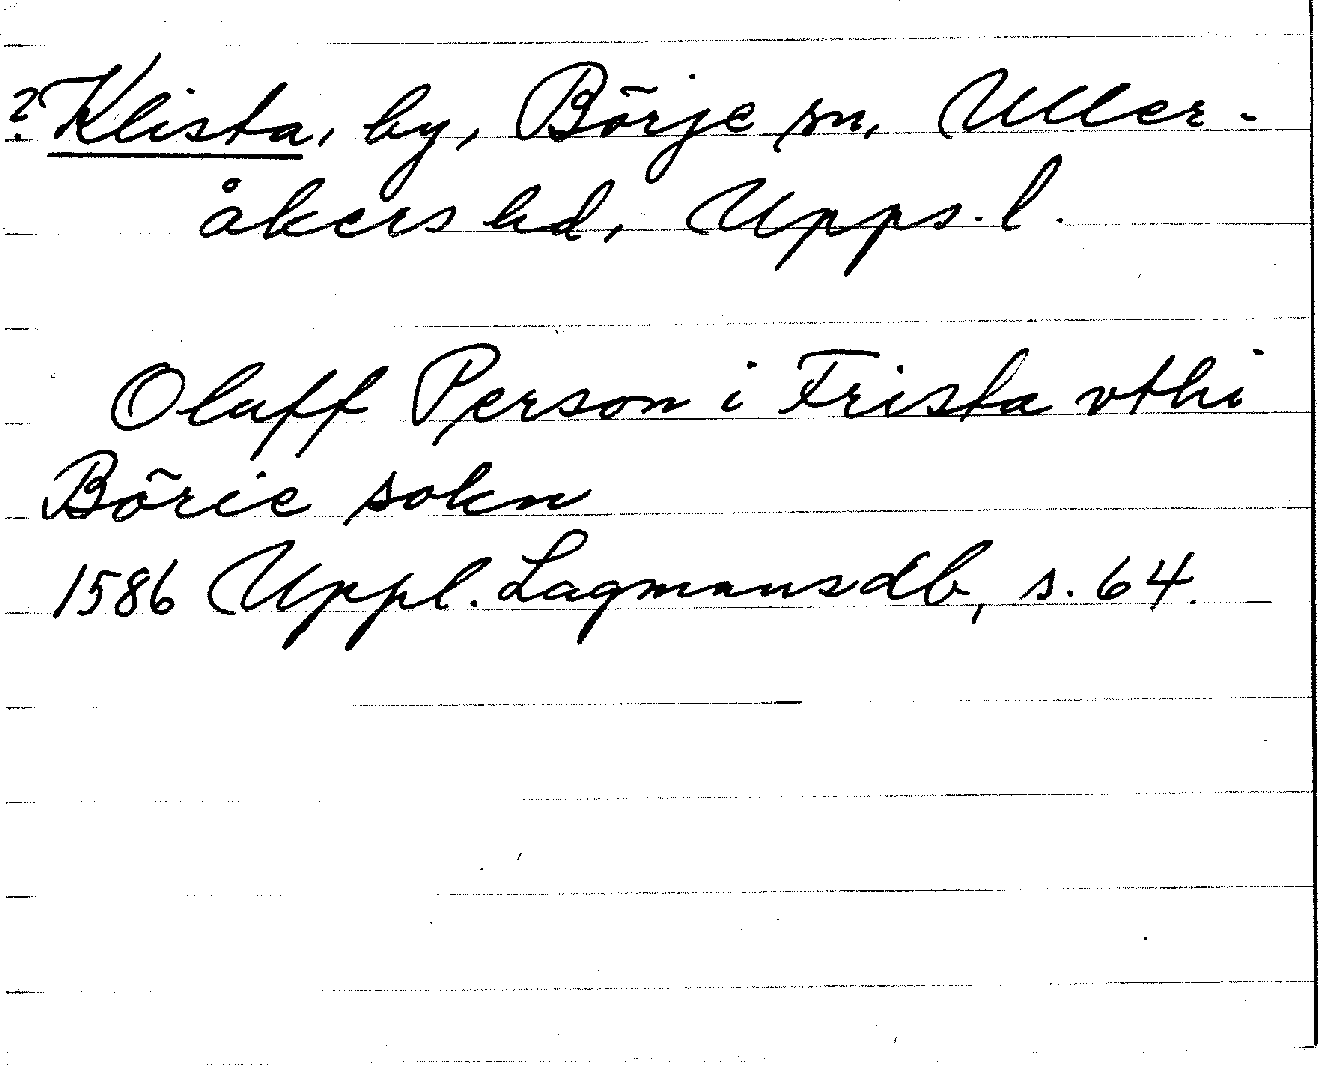 ? Klista, by, Börje sn, Uller-
åkers hd, Upps. l.
Oluff Person i Frista vthi
Börie sokn
1586 Uppl. Lagmansdb, s. 64.